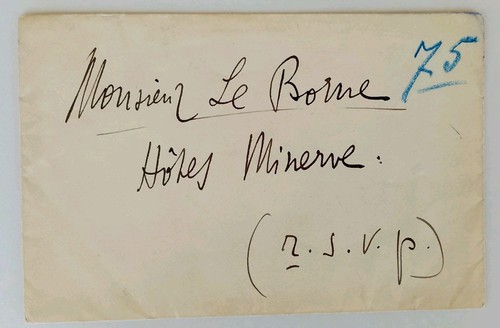 Monsieur Le Borne 75
Hôtel Minerve.
(r. s. v. p.)